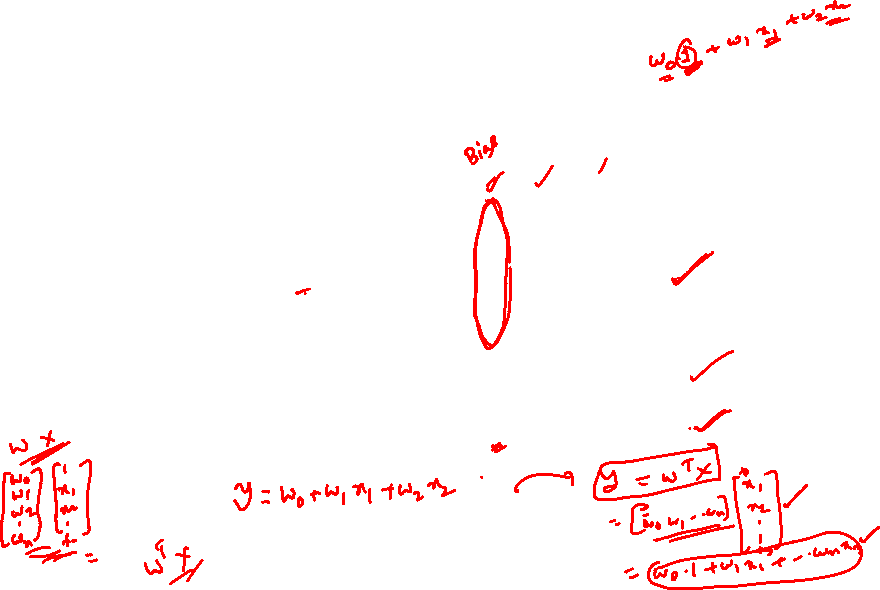 w₀ 1 + w₁ x₁ + w₂ x₂
Bias
w x
[w₀ w₁ w₂ . wₙ] [1 x₁ x₂ .]
y = w₀ + w₁ x₁ + w₂ x₂
y = wᵀ x
= [w₀ w₁ - - wₙ] [x₁ x₂ ⋮]
= w₀ · 1 + w₁ x₁ + - - · wₙ xₙ